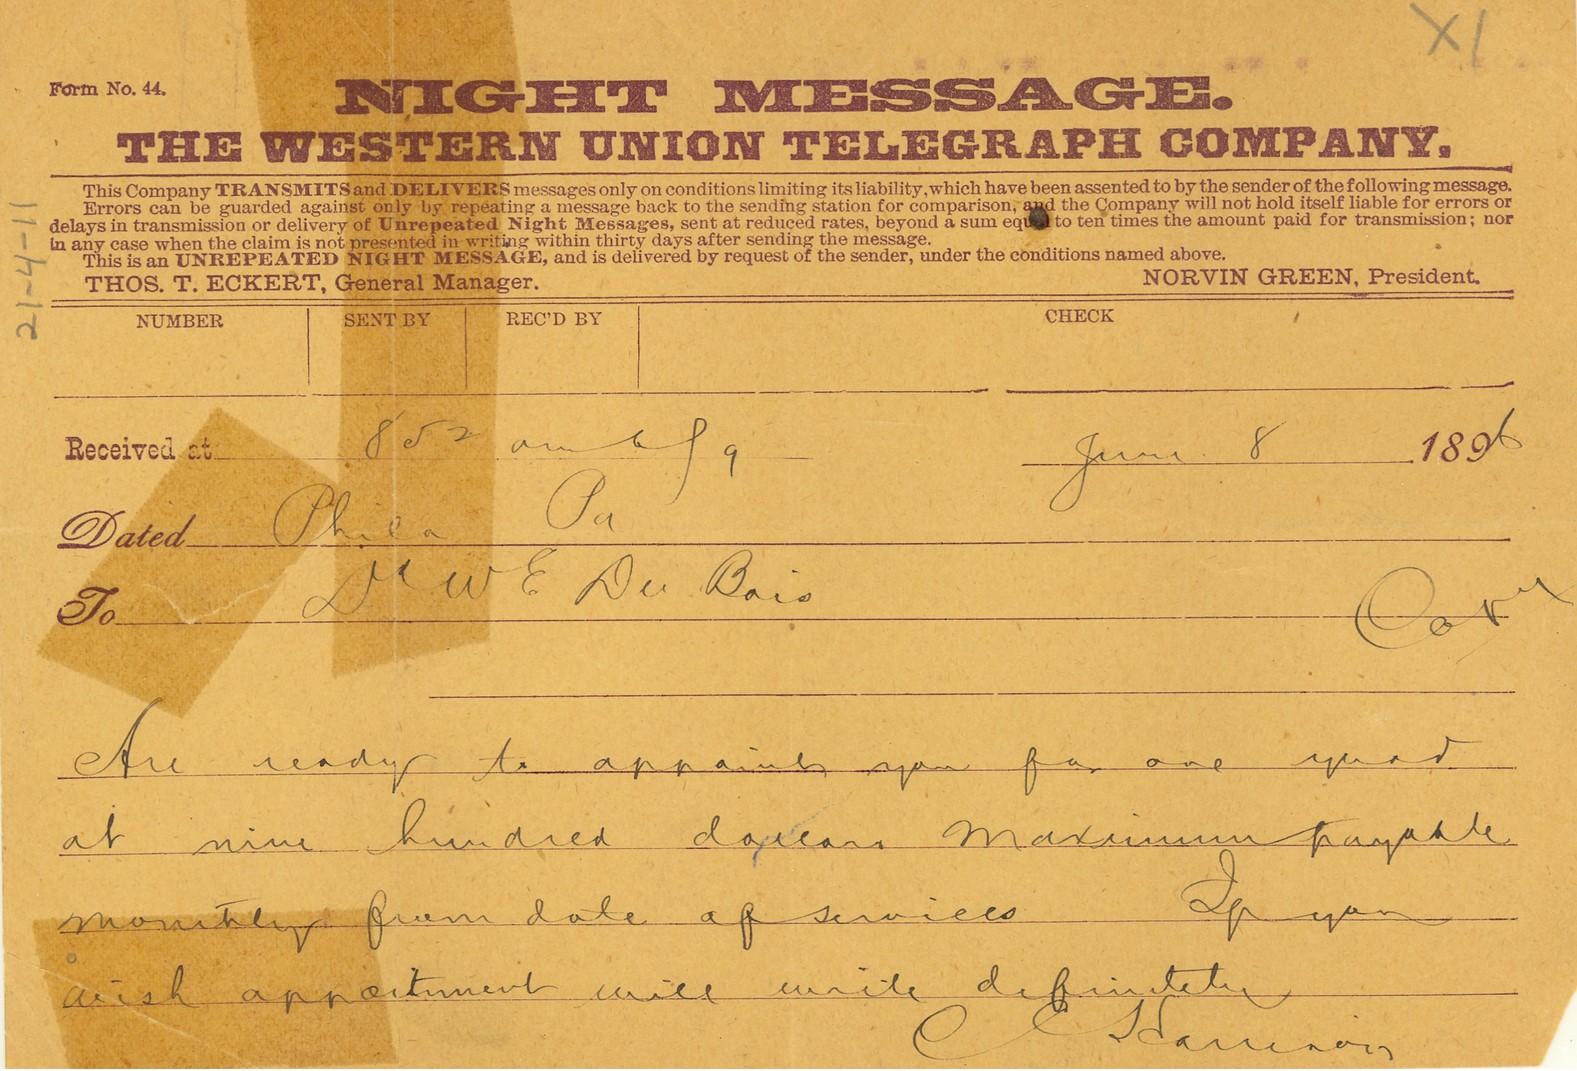 X1
Form No. 44.
NIGHT MESSAGE.
THE WESTERN UNION TELEGRAPH COMPANY.
21-4-11
This Company TRANSMITS and DELIVERS messages only on conditions limiting its liability, which have been assented to by the sender of the following message.
Errors can be guarded against only by repeating a message back to the sending station for comparison, and the Company will not hold itself liable for errors or
delays in transmission or delivery of Unrepeated Night Messages, sent at reduced rates, beyond a sum equal to ten times the amount paid for transmission; nor
in any case when the claim is not presented in writing within thirty days after sending the message.
This is an UNREPEATED NIGHT MESSAGE, and is delivered by request of the sender, under the conditions named above.
THOS. T. ECKERT, General Manager. NORVIN GREEN, President.
NUMBER SENT BY REC'D BY CHECK
Received at 852 am 9 June 8 1896
Dated Phila Pa
To Dr W E Du Bois
Are ready to appoint you for one year
at nine hundred dollars maximum payable
monthly from date of services If you
wish appoitment will write definitely
C C Harrison